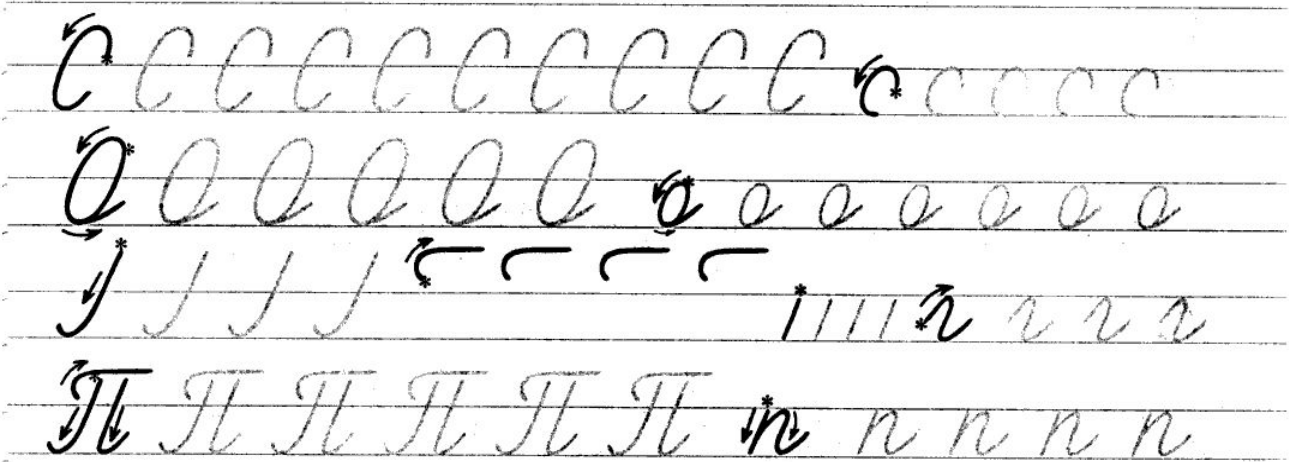 С С С С С С С С С С с с с с с
О О О О О О о о о о о о о
г г г г
П П П П П П п п п п п